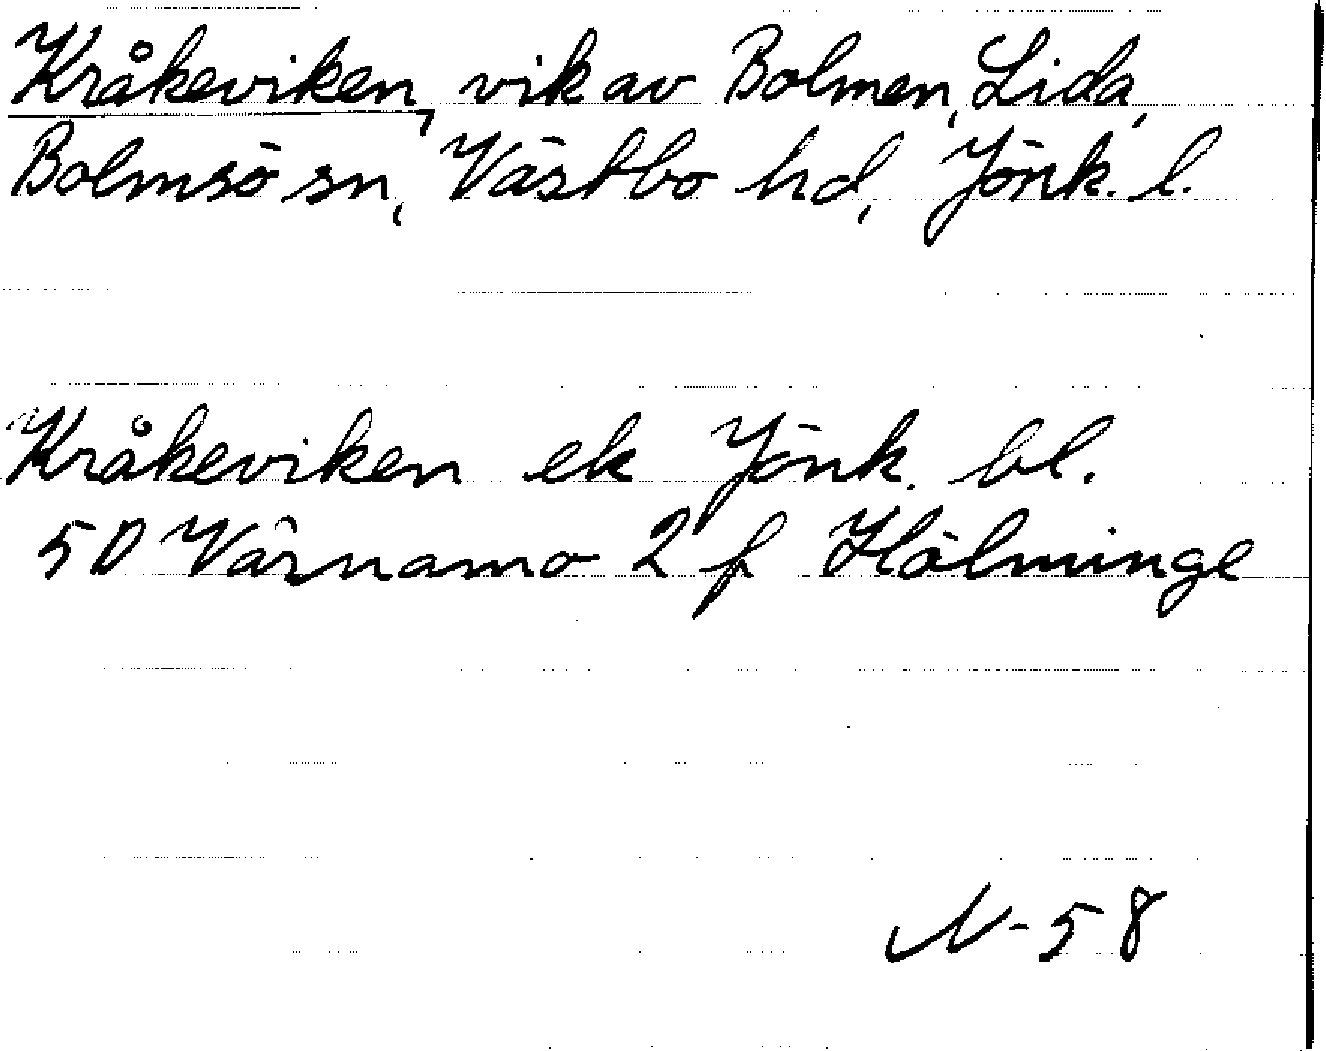 Kråkeviken, vik av Bolmen, Lida,
Bolmsö sn, Västbo hd, Jönk. l.
Kråkeviken ek Jönk. bl.
5D Värnamo 2 f Hölminge
N-58